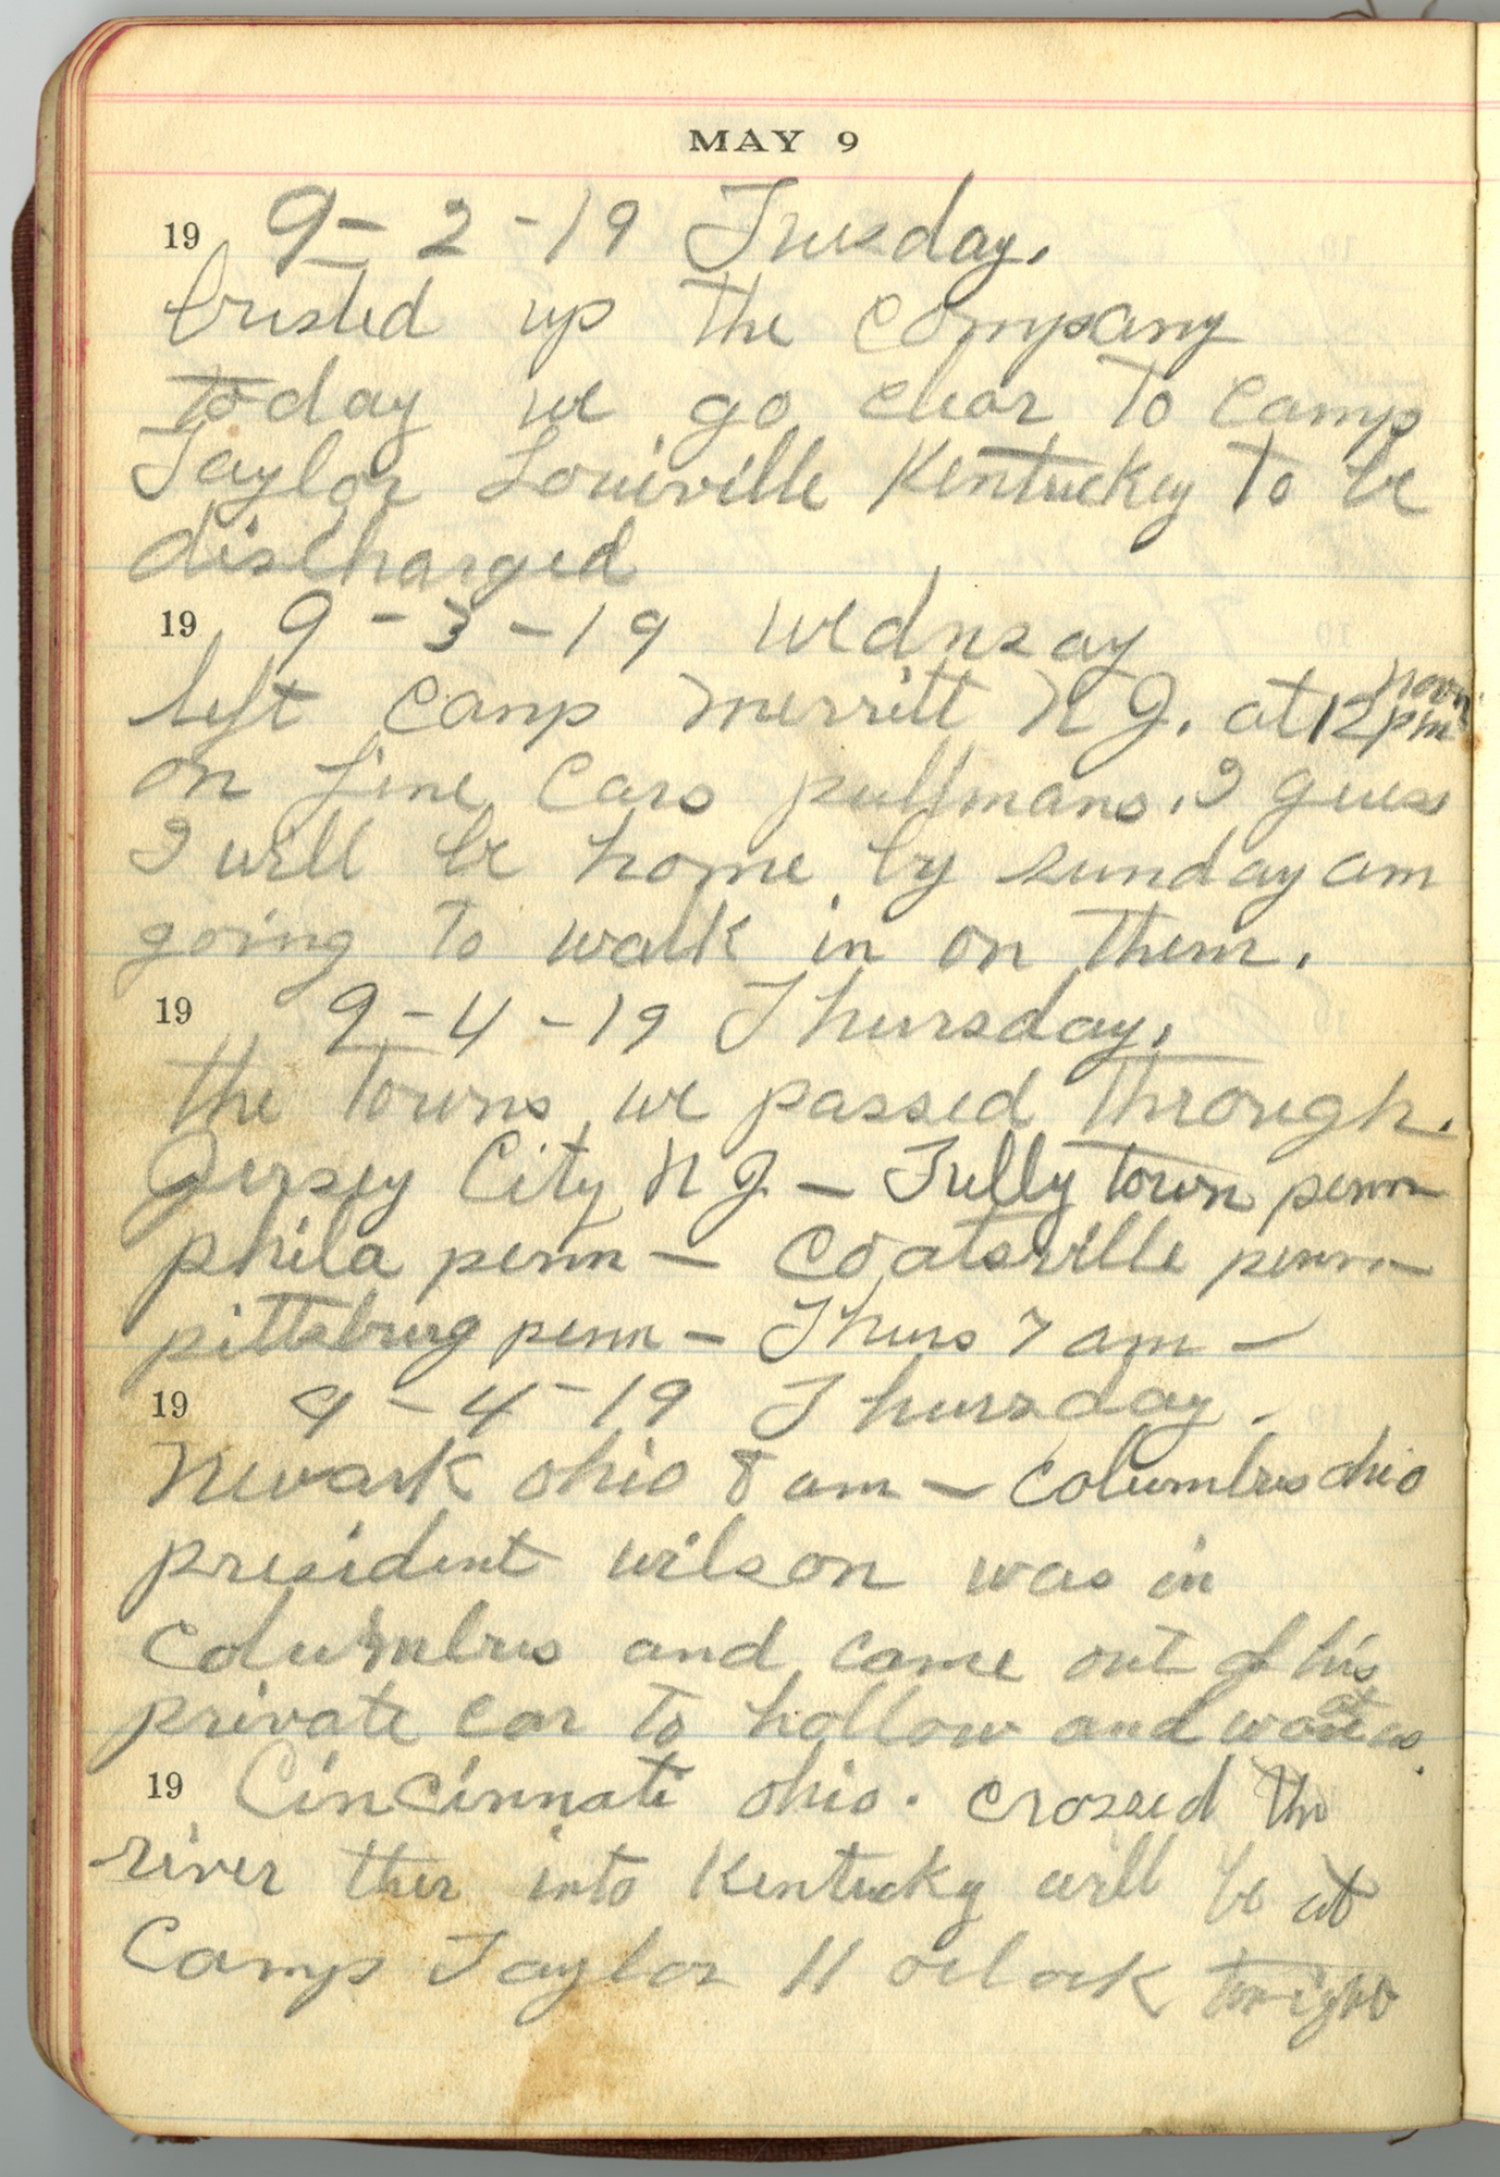 MAY 9
19 9-2-19 Tuesday.
busted up the company
today we go clear to Camp
Taylor Louiville Kentuckey to be
discharged
19 9-3-19 Wednsay
left Camp Merritt N J. at 12 noon pm
on fine Cars pullmans. I guess
I will be home by sunday am
going to walk in on them.
19 9-4-19 Thursday.
the towns we passed through.
Jersey City N J - Tully town penn
phila penn - Coatsville penn
pittsburg penn - Thurs 7 am -
19 9-4-19 Thursday.
Newark ohio 8 am - Columbus ohio
president wilson was in
Columbus and came out of his
private car to hollow and wave at us.
19 Cincinnati ohio. crossed the
river ther into Kentucky will be at
Camp Taylor 11 oclock tonight